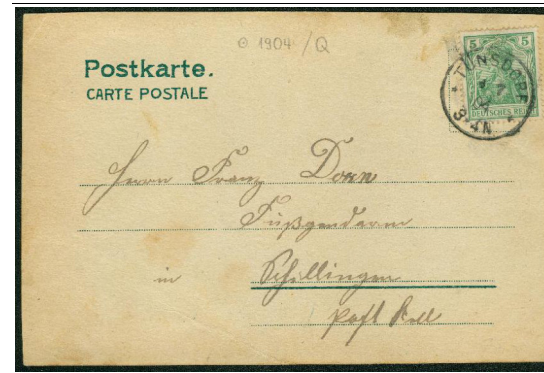 ⊙ 1904 / Q
Postkarte.
CARTE POSTALE
5 5
DEUTSCHES REICH
TÜNSDORF
3-4N
Herrn Franz Dorn
Fußgendarm
in Schillingen
Post Kell